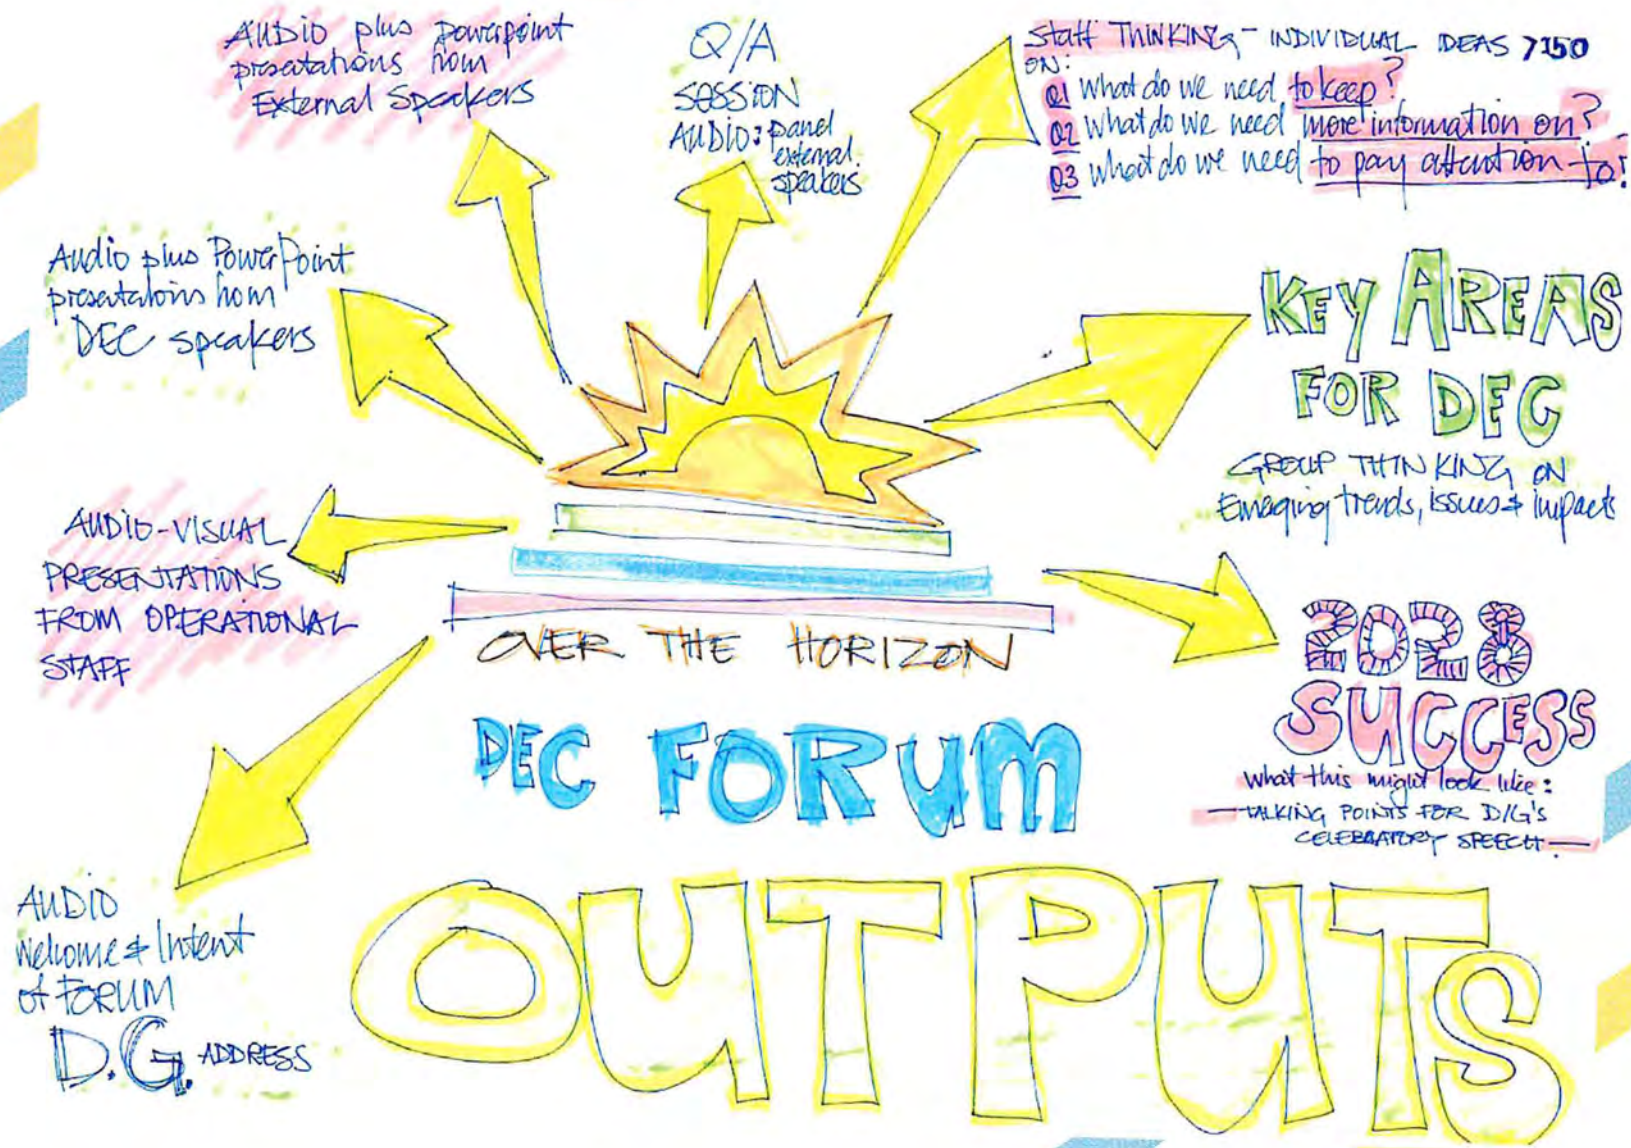 AUDIO plus powerpoint
presentations from
External Speakers
Q/A
SESSION
AUDIO: panel
external
speakers
Staff THINKING - INDIVIDUAL IDEAS 7150
ON:
Q1 What do we need to keep?
Q2 What do we need more information on?
Q3 What do we need to pay attention to?
Audio plus PowerPoint
presentations from
DEC speakers
KEY AREAS
FOR DEC
GROUP THINKING ON
Emerging trends, issues & impacts
AUDIO-VISUAL
PRESENTATIONS
FROM OPERATIONAL
STAFF
OVER THE HORIZON
2028
SUCCESS
What this might look like:
— TALKING POINTS FOR D/G'S
CELEBRATORY SPEECH —
DEC FORUM
OUTPUTS
AUDIO
Welcome & Intent
of FORUM
D.G. ADDRESS